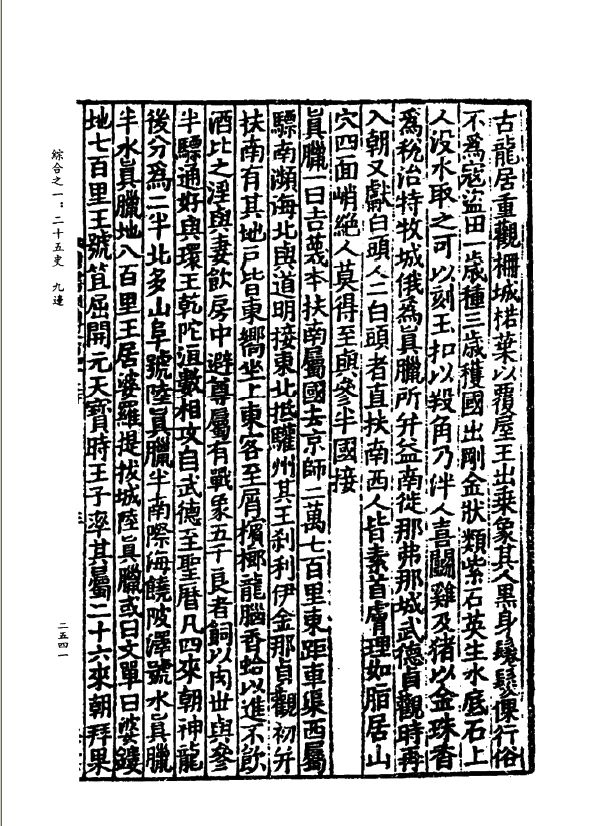 古龍居重觀柵城楛葉以覆屋王出乗象其人黒身鬈髮倮行俗
不為寇盜田一歳種三歳穫國出剛金狀類紫石英生水底石上
人没水取之可以刻玉扣以羖角乃泮人喜鬪雞及猪以金珠香
為稅治特牧城俄為真臘所并益南徙那弗那城武德貞觀時再
入朝又獻白頭人二白頭者直扶南西人皆素首膚理如脂居山
穴四面峭絶人莫得至與參半國接
真臘一曰吉蔑本扶南屬國去京師二萬七百里東距車渠西屬
驃南瀕海北與道明接東北抵驩州其王刹利伊金那貞觀初并
扶南有其地戸皆東嚮坐上東客至屑檳榔龍腦香蛤以進不飲
酒比之淫與妻飲房中避尊屬有戰象五千良者飼以肉世與參
半驃通好與環王乾陀洹數相攻自武德至聖暦凡四來朝神龍
後分為二半北多山阜號陸真臘半南際海饒陂澤號水真臘
半水真臘地八百里王居婆羅提拔城陸真臘或曰文單曰婆鏤
地七百里王號笡屈開元天寶時王子率其屬二十六來朝拜果
綜合之一：二十五史 九邊
二五四一